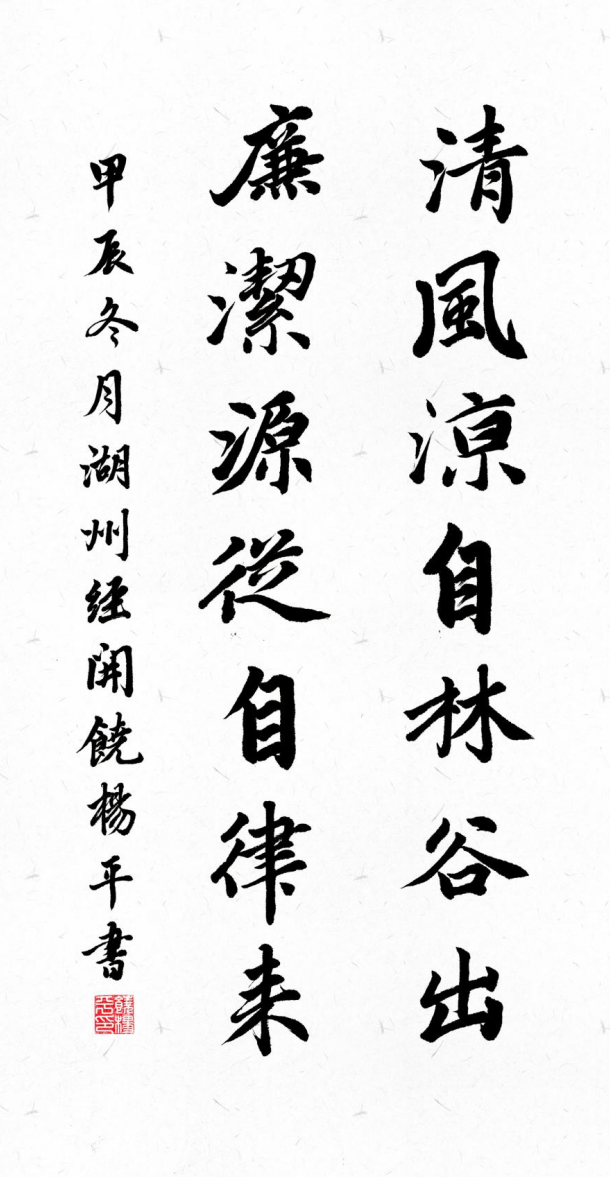 清風涼自林谷出
廉潔源從自律来
甲辰冬月湖州経開饒楊平書